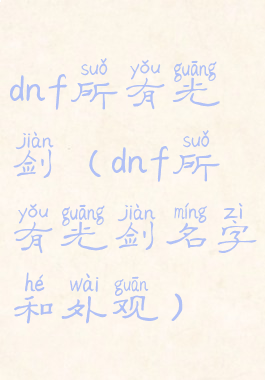 suǒ yǒu guāng
dnf所有光
jiàn suǒ
剑（dnf所
yǒu guāng jiàn míng zì
有光剑名字
hé wài guān
和外观）